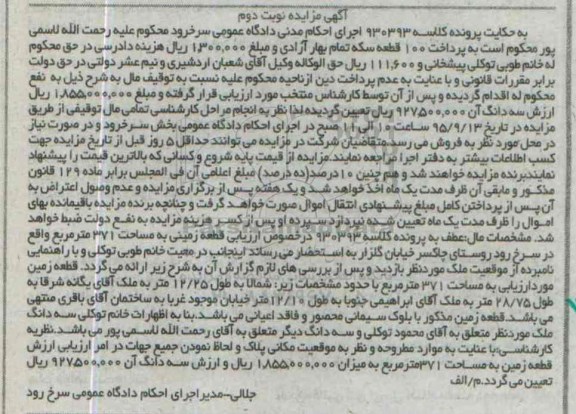 آگهی مزایده نوبت دوم
به حکایت پرونده کلاسه ۹۳۰۳۹۳ اجرای احکام مدنی دادگاه عمومی سرخرود محکوم علیه رحمت الله لاسمی
پور محکوم است به پرداخت ۱۰۰ قطعه سکه تمام بهار آزادی و مبلغ ۱,۳۰۰,۰۰۰ ریال هزینه دادرسی در حق محکوم
له خانم طوبی توکلی پیشخانی و ۱۱۱,۶۰۰ ریال حق الوکاله وکیل آقای شعبان اردشیری و نیم عشر دولتی در حق دولت
برابر مقررات قانونی و با عنایت به عدم پرداخت دین ازناحیه محکوم علیه نسبت به توقیف مال به شرح ذیل به نفع
محکوم له اقدام گردیده و پس از آن توسط کارشناس منتخب مورد ارزیابی قرار گرفته و مبلغ ۱,۸۵۵,۰۰۰,۰۰۰ ریال
ارزش سه دانگ آن ۹۲۷۵۰۰,۰۰۰ ریال تعیین گردیده لذا نظر به انجام مراحل کارشناسی تمامی مال توقیفی از طریق
مزایده در تاریخ ۹۵/۹/۱۳ ساعت ۱۰ الی ۱۱ صبح در اجرای احکام دادگاه عمومی بخش سرخرود و در صورت نیاز
در محل مورد نظر به فروش می رسد.متقاضیان شرکت در مزایده می توانند حداقل ۵ روز قبل از تاریخ مزایده جهت
کسب اطلاعات بیشتر به دفتر اجرا مراجعه نمایند.مزایده از قیمت پایه شروع و کسانی که بالاترین قیمت را پیشنهاد
نمایند برنده مزایده خواهند شد و هم چنین ۱۰درصد(ده درصد) مبلغ اعلامی آن فی المجلس برابر ماده ۱۲۹ قانون
مذکور و مابقی آن ظرف مدت یک ماه اخذ خواهد شد و یک هفته پس از برگزاری مزایده و عدم وصول اعتراض به
آن پس از پرداختن کامل مبلغ پیشنهادی انتقال اموال صورت خواهد گرفت و چنانچه برنده مزایده باقیمانده بهای
اموال را ظرف مدت یک ماه تعیین شده نپردازد سپرده او پس از کسر هزینه مزایده به نفع دولت ضبط خواهد
شد. مشخصات مال:عطف به پرونده کلاسه ۹۳۰۳۹۳ درخصوص ارزیابی قطعه زمینی به مساحت ۳۷۱ مترمربع واقع
در سرخ رود روستای چاکسر خیابان گلزار به استحضار می رساند اینجانب در معیت خانم طوبی توکلی و با راهنمایی
نامبرده از موقعیت ملک موردنظر بازدید و پس از بررسی های لازم گزارش آن به شرح زیر ارائه می گردد. قطعه زمین
موردارزیابی به مساحت ۳۷۱ مترمربع با حدود مشخصات زیر: شمالا به طول ۱۲/۲۵ متر به ملک آقای یگانه شرقا به
طول ۲۸/۷۵ متر به ملک آقای ابراهیمی جنوبا به طول ۱۲/۱۰ متر خیابان موجود غربا به ساختمان آقای باقری منتهی
می باشد.قطعه زمین مذکور با بلوک سیمانی محصور و فاقد اعیانی می باشد.بنا به اظهارات خانم توکلی سه دانگ
ملک موردنظر متعلق به آقای محمود توکلی و سه دانگ دیگر متعلق به آقای رحمت الله لاسمی پور می باشد.نظریه
کارشناسی:با عنایت به موارد مطروحه و نظر به موقعیت مکانی پلاک و لحاظ نمودن جمیع جهات در امر ارزیابی ارزش
قطعه زمین به مساحت ۳۷۱مترمربع به میزان ۱,۸۵۵,۰۰۰,۰۰۰ ریال و ارزش سه دانگ آن ۹۲۷۵۰۰,۰۰۰ ریال
تعیین می گردد.م/الف
جلالی-مدیر اجرای احکام دادگاه عمومی سرخ رود